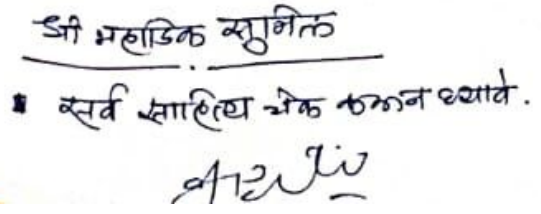 श्री महाडिक सुनिल
सर्व साहित्य चेक करून घ्यावे.